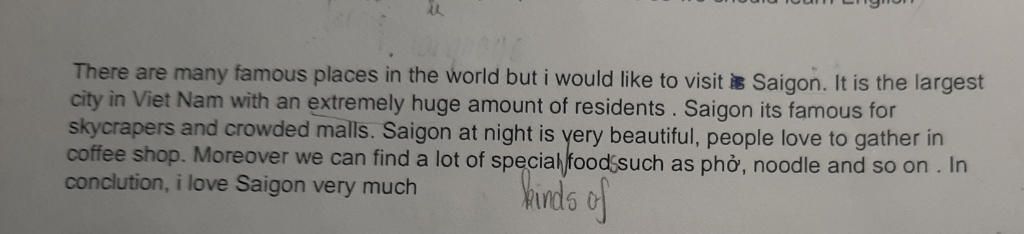 learn English
There are many famous places in the world but i would like to visit is Saigon. It is the largest
city in Viet Nam with an extremely huge amount of residents . Saigon its famous for
skycrapers and crowded malls. Saigon at night is very beautiful, people love to gather in
coffee shop. Moreover we can find a lot of special foods such as phở, noodle and so on . In
conclution, i love Saigon very much
kinds of